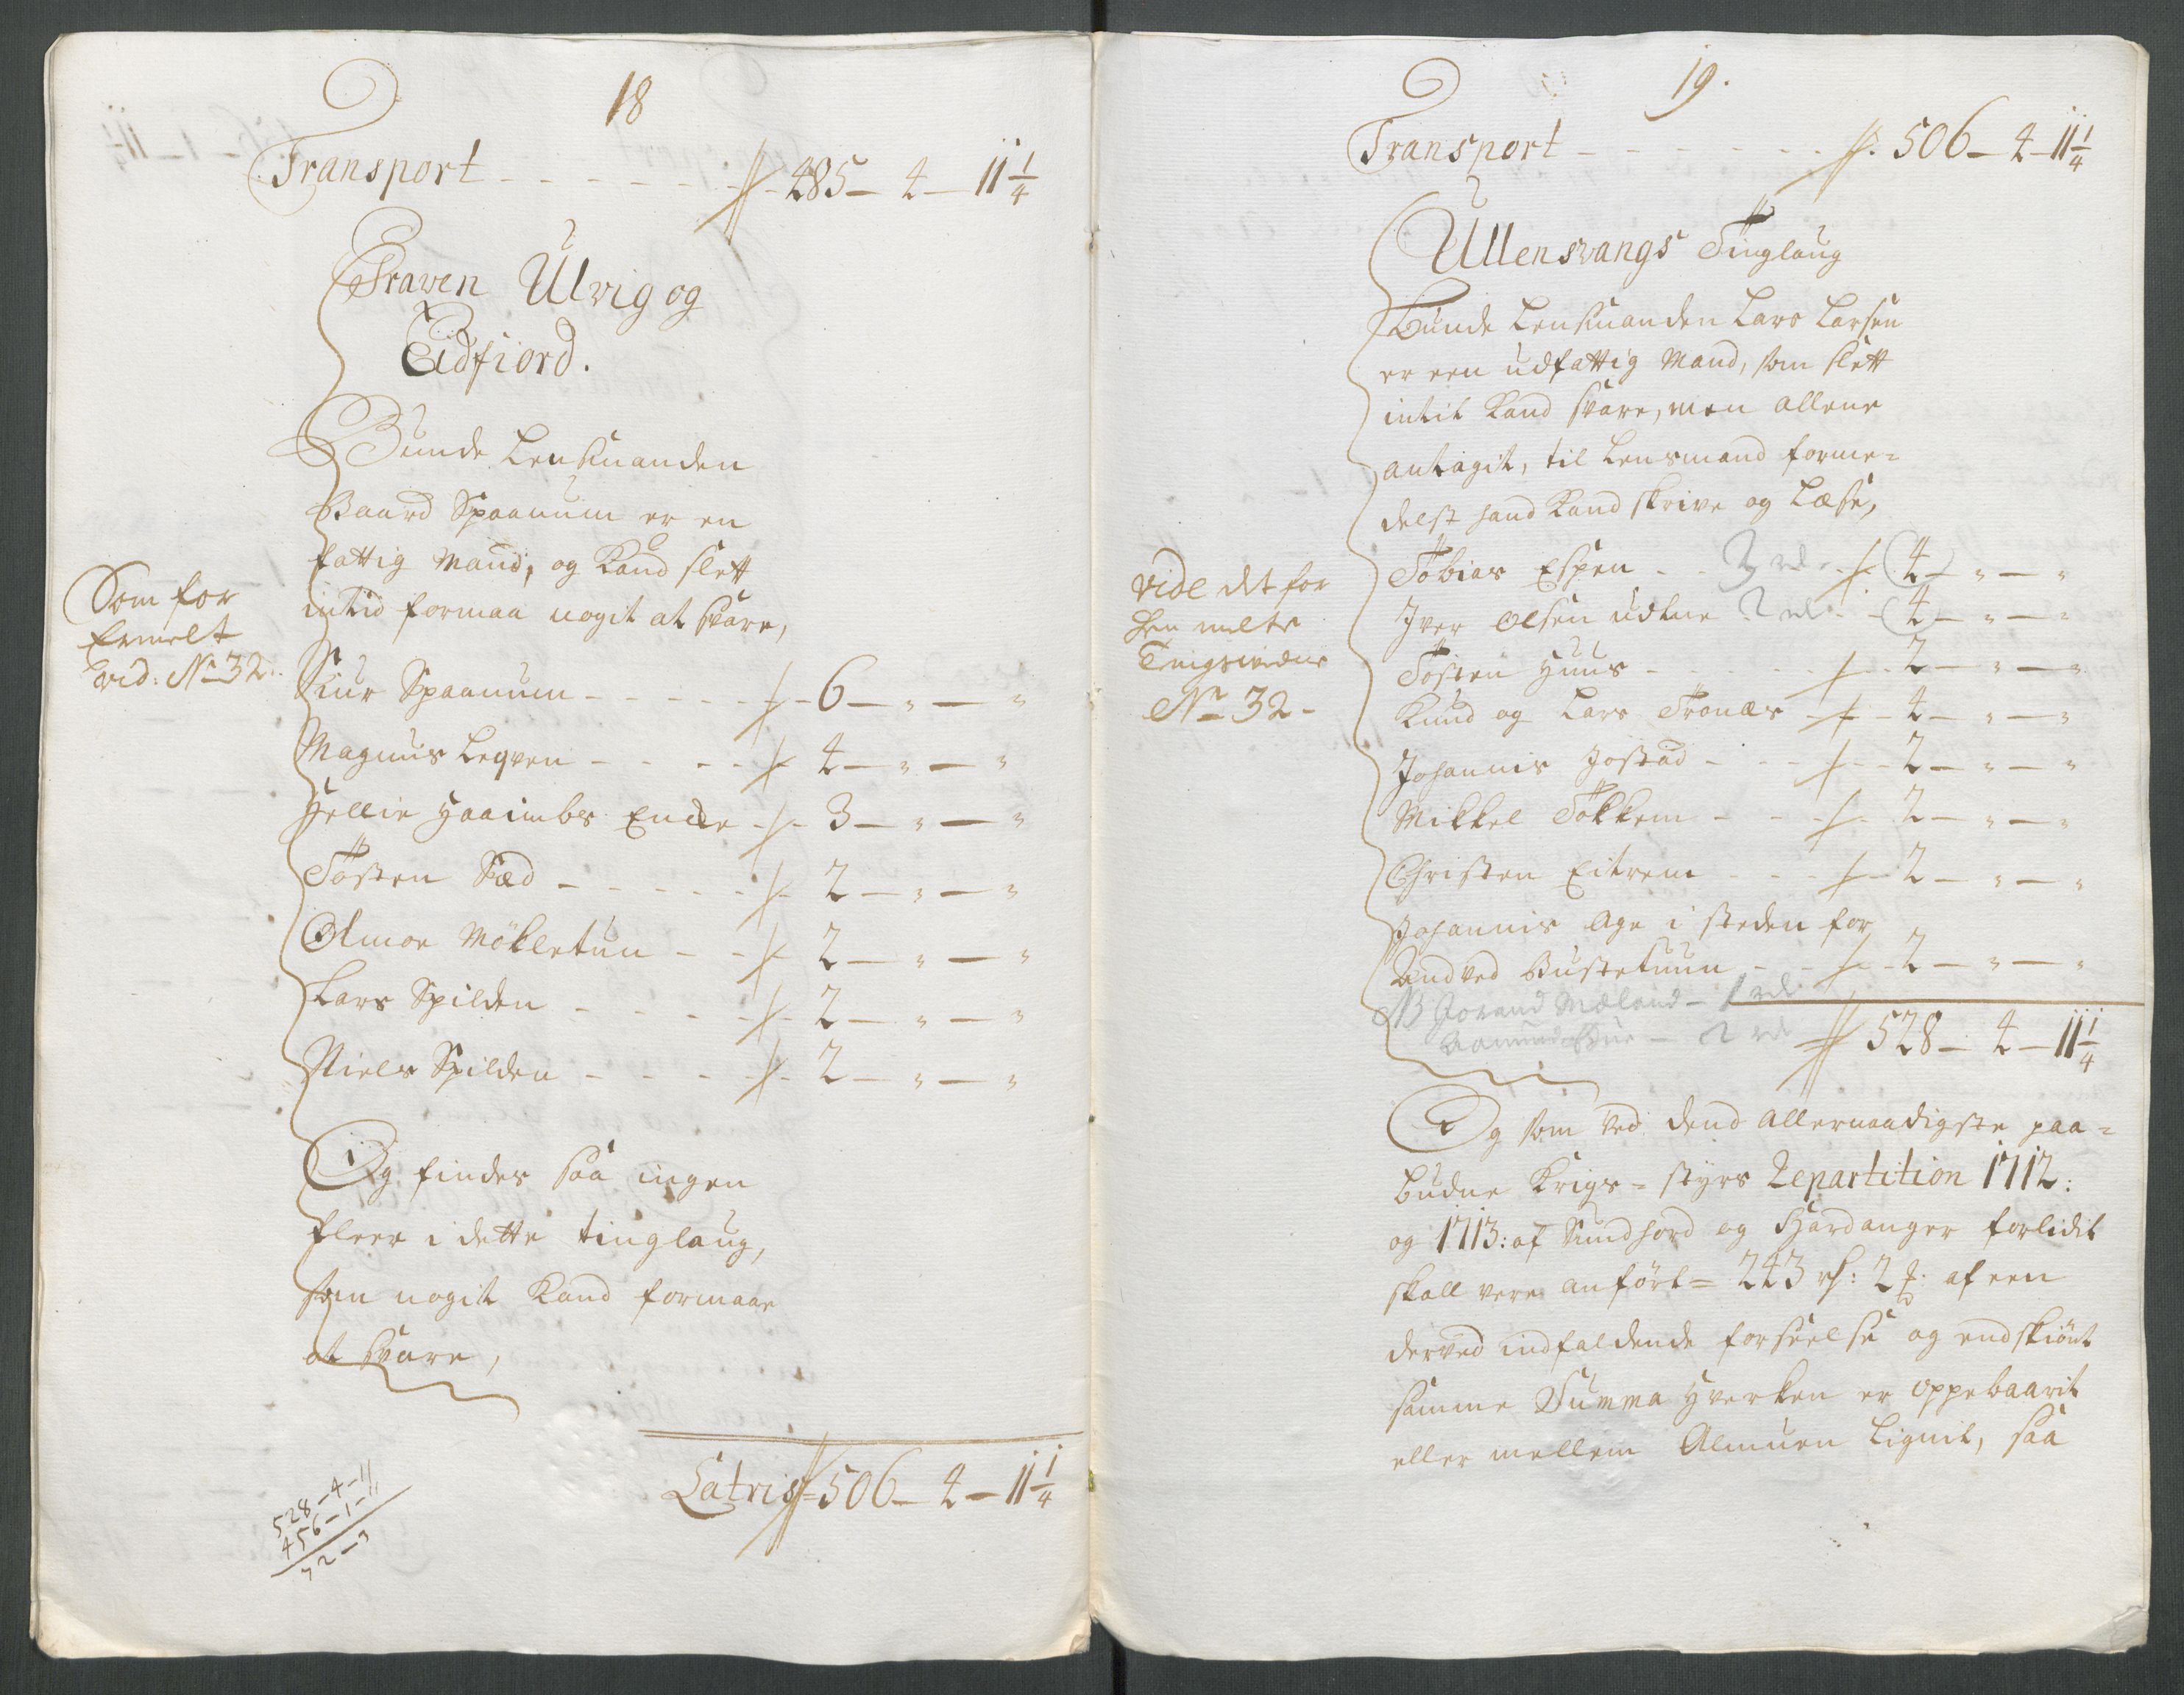 18
Transport - - - - - - - 485 - 4 - 11 1/4
Graven Ulvig og
Eidfiord.
Bunde Lensmanden
Baard Spaanum er en
fattig Mand, og Kand slett
intid formaa nogit at svare,
Som for
Ermelt
vid: No 32.
Siur Spaanum - - - - - 6 - „ - „
Magnus Leqven - - - - 4 - „ - „
Hellie Haaimbs Encke - 3 - „ - „
Tosten Sæd - - - - - 2 - „ - „
Olmoe Møkletun - - 2 - „ - „
Lars Spilden - - - - 2 - „ - „
Niels Spilden - - - - 2 - „ - „
Og findes saa ingen
fleer i dette tinglaug,
som nogit Kand formaae
at svare,
Latris = 506 - 4 - 11 1/4
528 - 4 - 11
456 - 1 - 11
72 - 3
19.
Transport - - - - - - 506 - 4 - 11 1/4
Ullensvangs Tinglaug
Bunde Lensmanden Lars Larsen
er een udfattig Mand, som slett
intit Kand svare, men allene
antagit, til Lensmand forme=
delst hand Kand skrive og Læse,
vide dt for
hen melte
Tingsvidne
No 32 -
Tobias Espen - - 3 rd - 4 - „ - „
Iver Olsen udtne 2 rd - 4 - „ - „
Tosten Huus - - - - 2 - „ - „
Knud og Lars Tronæs - 4 - „ - „
Johannis Jostad - - - 2 - „ - „
Mikkel Tokkem - - - 2 - „ - „
Christen Eitrem - - - 2 - „ - „
Johannis Age i steden for
Andved Bustetuun - - 2 - „ - „
NB Joran Mæland - 1 rd
Aamund Bue - 2 rd
528 - 4 - 11 1/4
Og som ved dend allernaadigste paa=
budne Krigs = styrs Repartition 1712:
og 1713: af Sundhord og Hardanger forlidit
skall vere anført = 243 rh: 2 ꝑ: af een
derved indfaldende forseelse og endskiønt
samme Summa hverken er oppebaarit
eller mellem Almuen Lignit, saa